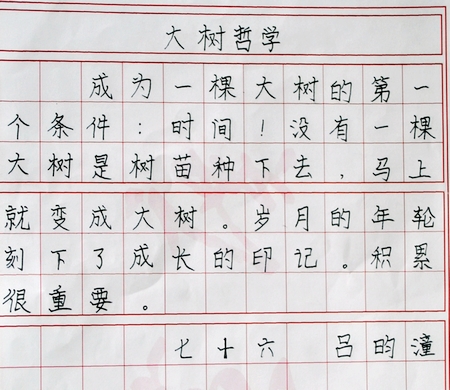 大树哲学
成为一棵大树的第一
个条件：时间！没有一棵
大树是树苗种下去，马上
就变成大树。岁月的年轮
刻下了成长的印记。积累
很重要。
七十六 吕昀潼